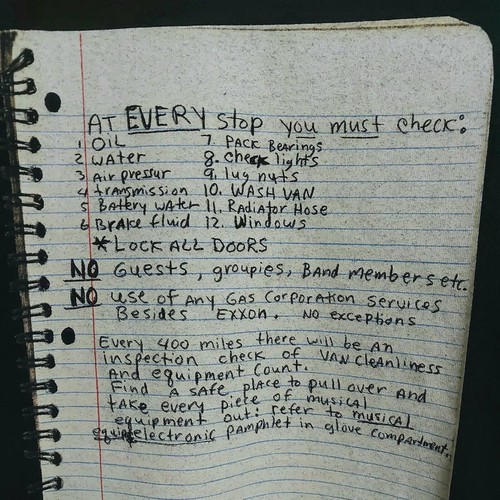 AT EVERY stop you must check:
1 OIL 7. PACK BEARINGS
2 water 8. check lights
3 Air pressur 9. lug nuts
4 transmission 10. WASH VAN
5 BATTery WATer 11. RADIATOR HOSE
6 BRAKE fluid 12. Windows
* LOCK ALL DOORS
NO Guests, groupies, BAND members etc.
NO use of Any Gas Corporation Services
Besides EXXON. NO exceptions
Every 400 miles there will be An
inspection check of VAN cleanliness
And equipment Count.
Find A SAFE place to pull over AND
take every piece of musical
equipment out: refer to musical
electronic pamphlet in glove compartment.